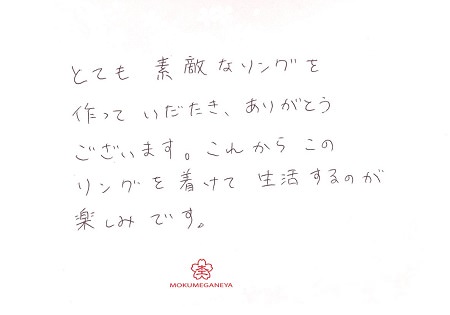 とても 素敵なリングを
作って いだたき、ありがとう
ございます。これから この
リングを着けて 生活するのが
楽しみです。
MOKUMEGANEYA